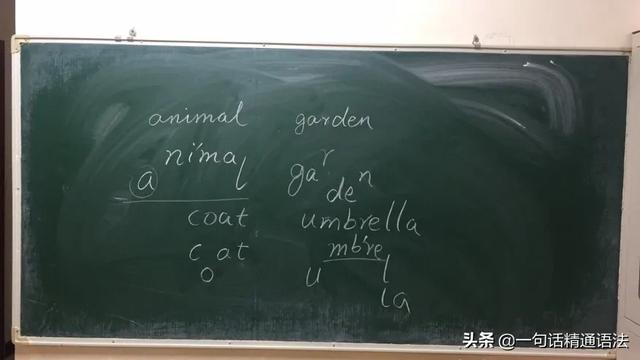 animal garden
nimal
a
ga r
den
coat umbrella
c at mbre
o u l
la
头条 @一句话精通语法